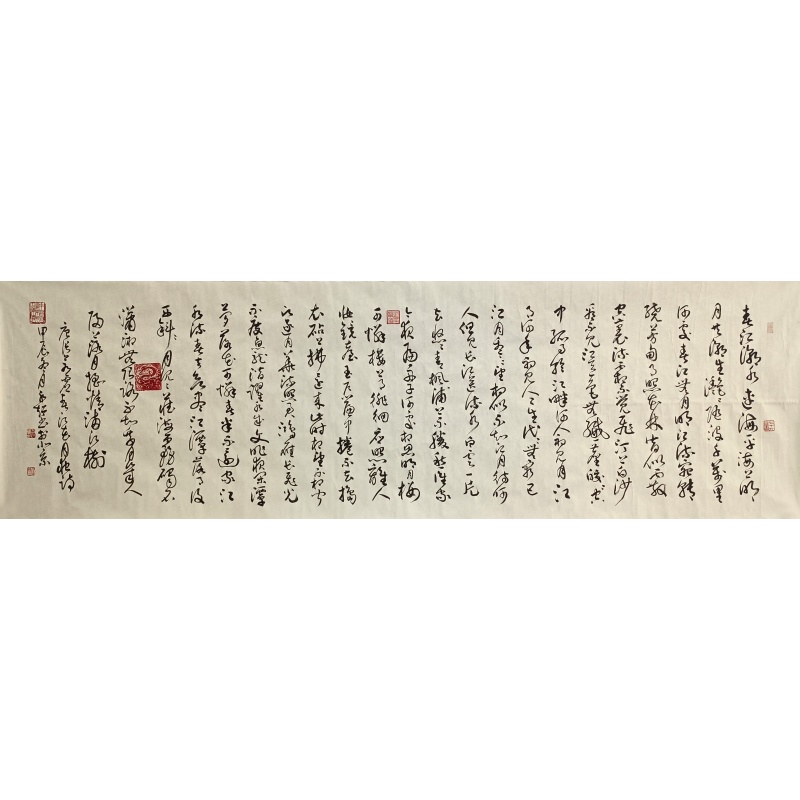 春江潮水連海平海上明
月共潮生灩灩隨波千萬里
何處春江無月明江流宛轉
繞芳甸月照花林皆似霰
空裏流霜不覺飛汀上白沙
看不見江天一色無纖塵皎皎空
中孤月輪江畔何人初見月江
月何年初照人人生代代無窮已
江月年年望相似不知江月待何
人但見長江送流水白雲一片
去悠悠青楓浦上不勝愁誰家
今夜扁舟子何處相思明月樓
可憐樓上月徘徊應照離人
妝鏡臺玉戶簾中捲不去搗
衣砧上拂還來此時相望不相聞
願逐月華流照君鴻雁長飛光
不度魚龍潛躍水成文昨夜閑潭
夢落花可憐春半不還家江
水流春去欲盡江潭落月復
西斜斜月沉沉藏海霧碣石
瀟湘無限路不知乘月幾人
歸落月搖情滿江樹
唐張若虛春江花月夜詩
甲辰 月 書於北京